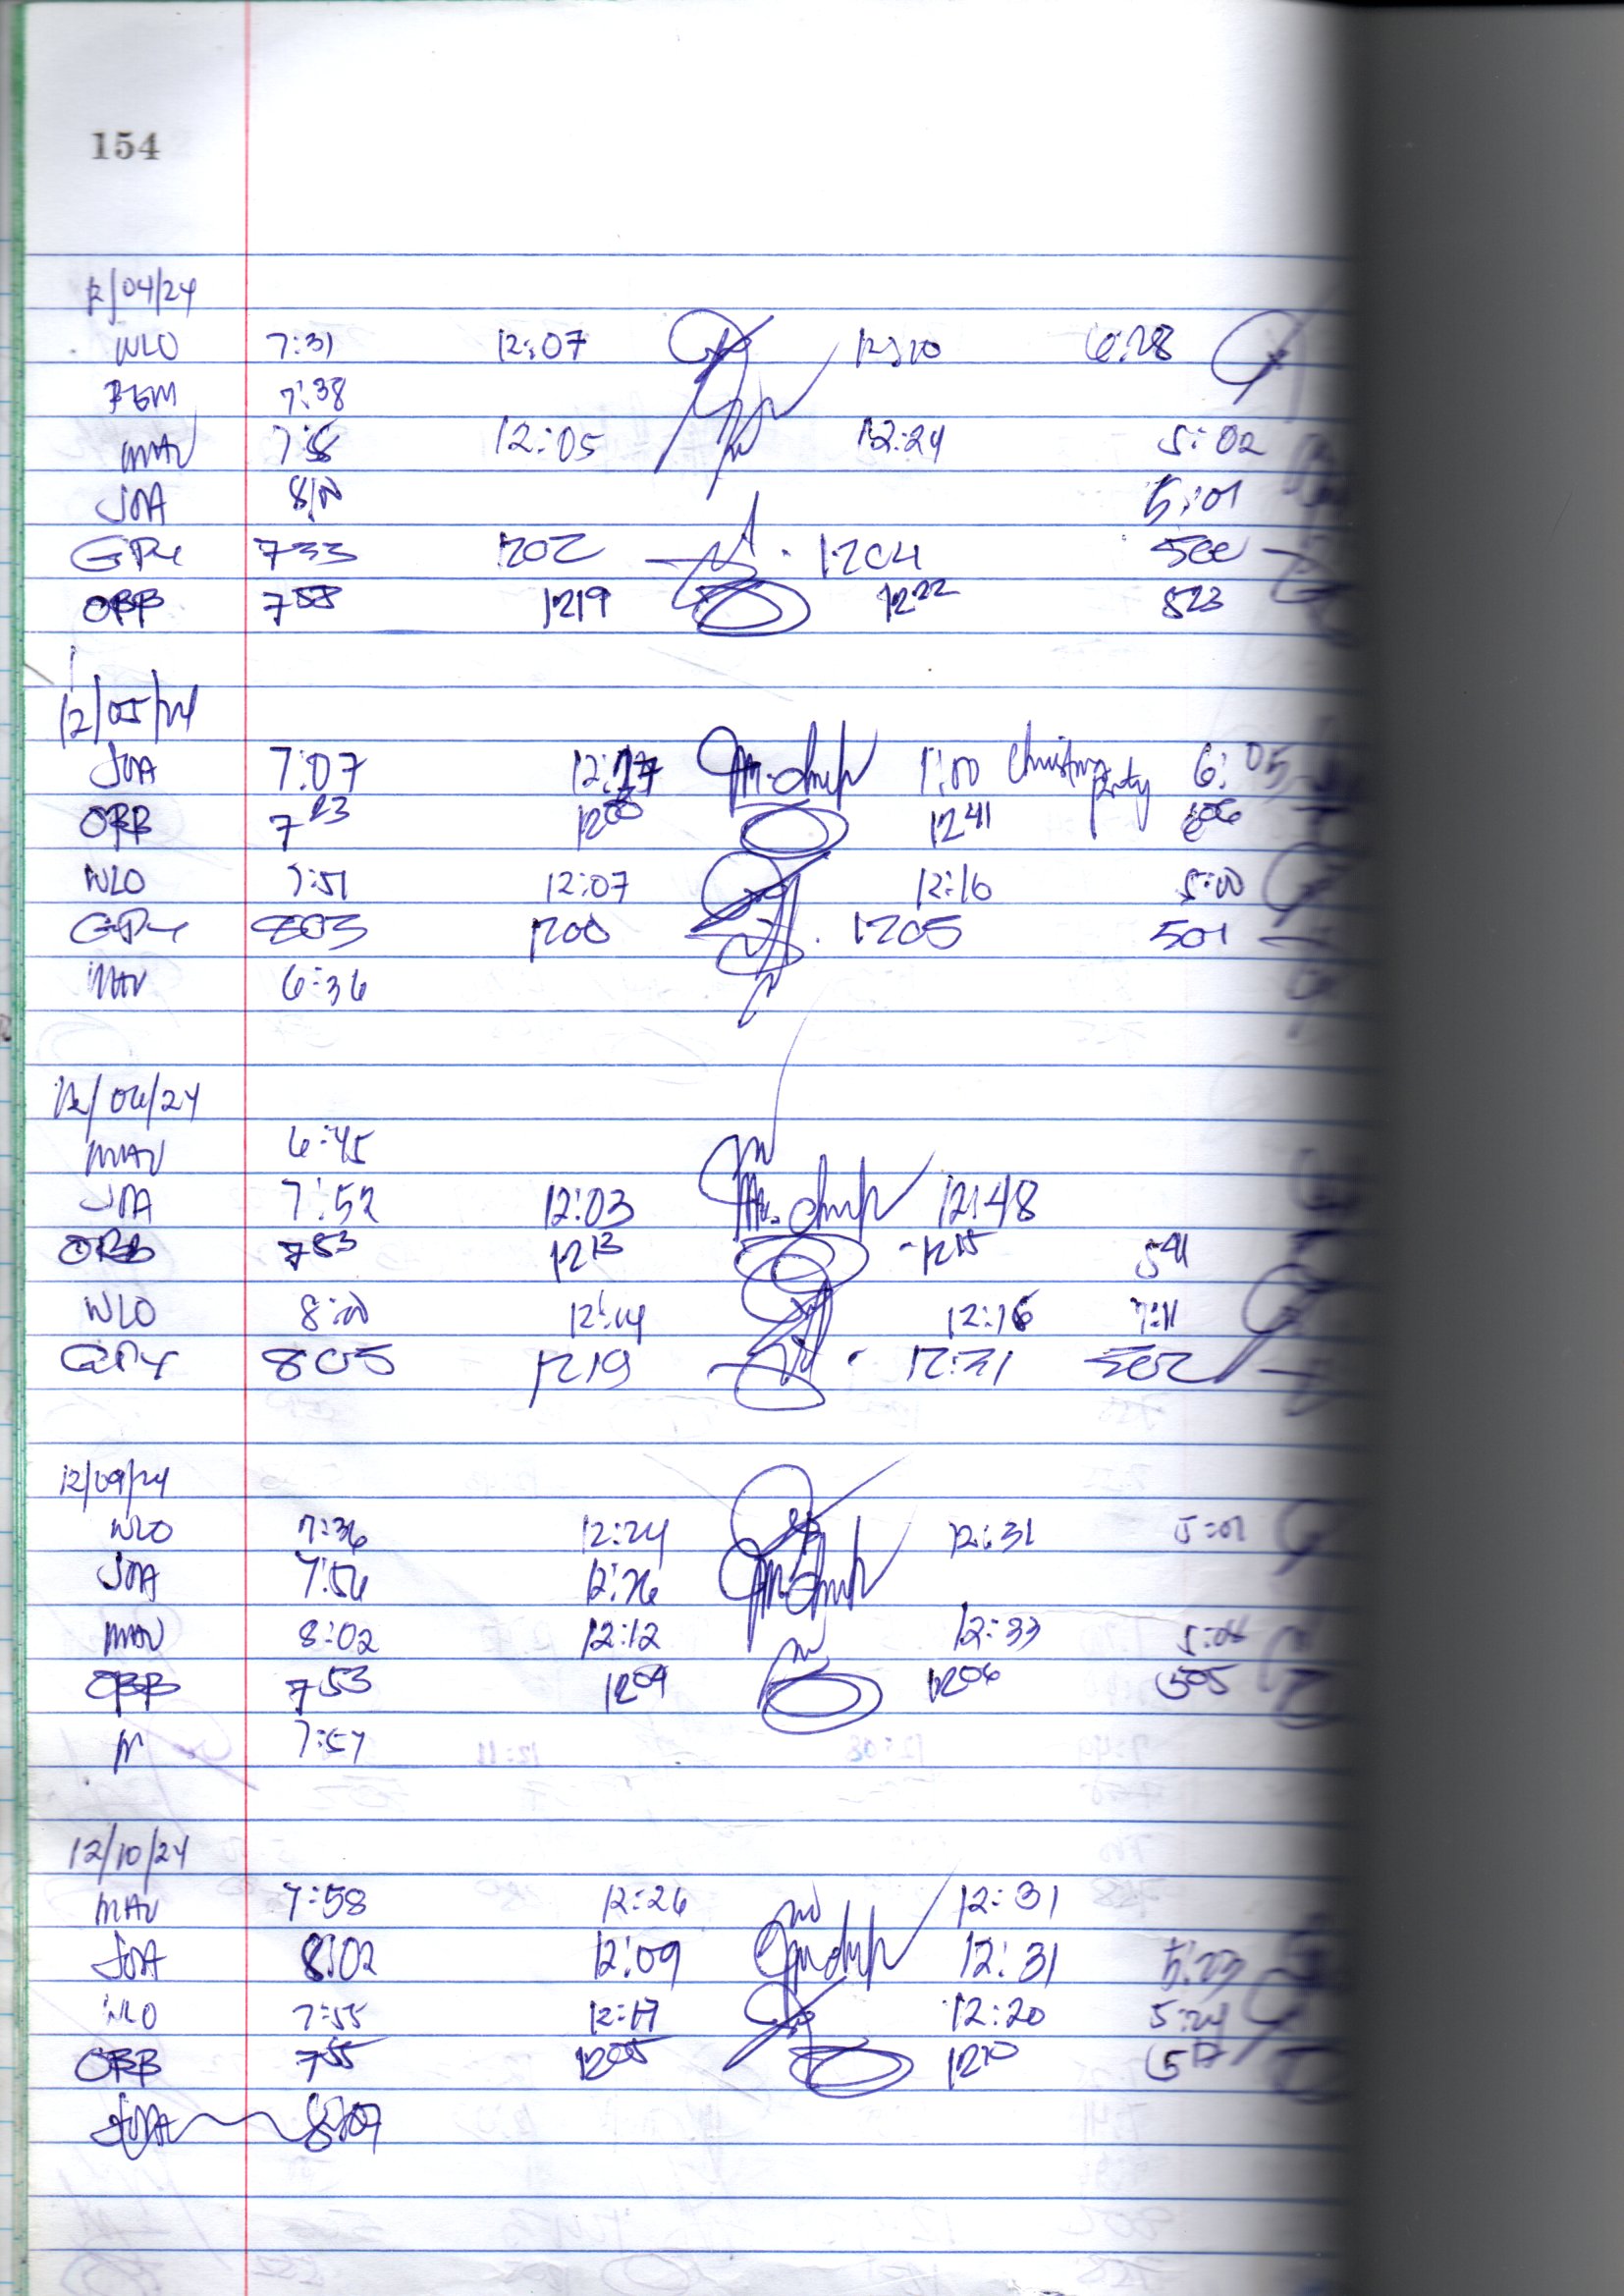 154
12/04/24
WLO 7:31 12:07 12:10 6:28
7:38
MAV 7:58 12:05 12:24 5:02
JOA 8:00 5:01
733 1202 1204 500
OBB 758 1219 1222 523
12/05/24
JOA 7:07 1:00 Christmas party 6:05
OBB 723 1200 1241 606
WLO 7:51 12:07 12:16 5:00
803 1200 1205 501
MAV 6:36
12/06/24
MAV 6:45
JOA 7:52 12:03 12:48
OBB 753 1213 1215 541
WLO 8:00 12:14 12:16 7:11
805 1219 12:21 502
12/09/24
WLO 7:36 12:24 12:31 5:01
JOA 7:56 12:26
MAV 8:02 12:12 12:33
OBB 753 1204 1206 505
7:57
12/10/24
MAV 7:58 12:26 12:31
JOA 8:02 12:09 12:31 5:23
WLO 7:55 12:17 12:20 5:24
OBB 755 1205 1210 517